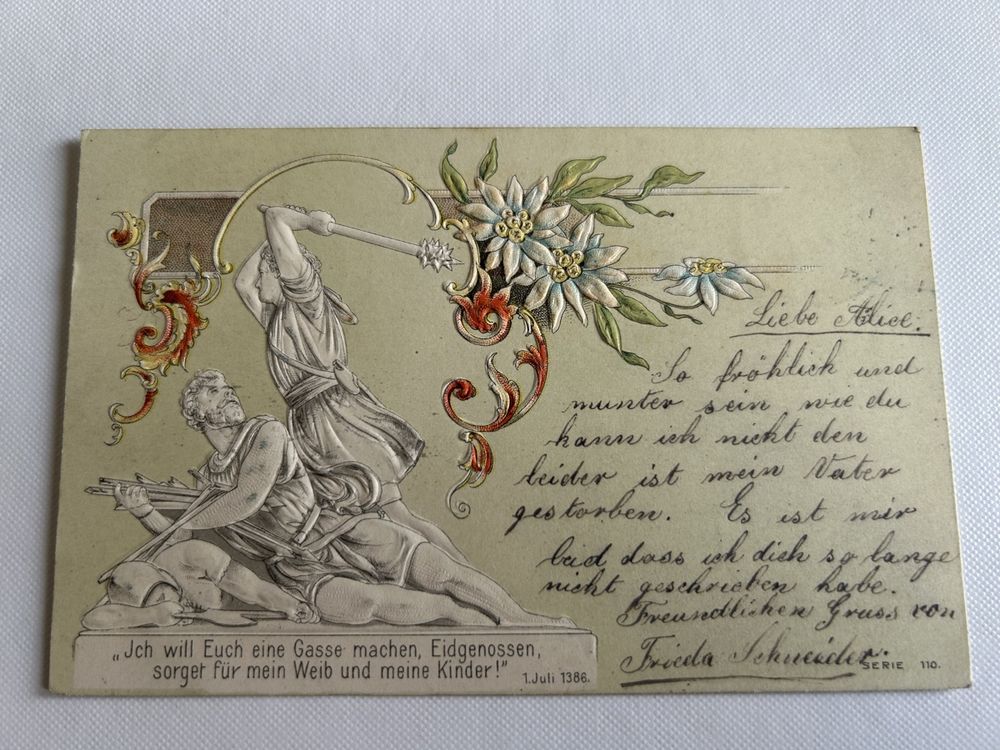 Liebe Alice.
So fröhlich und
munter sein wie du
kann ich nicht den
leider ist mein Vater
gestorben. Es ist mir
leid dass ich dich so lange
nicht geschrieben habe.
Freundlichen Gruss von
Frieda Schneider.
„Jch will Euch eine Gasse machen, Eidgenossen,
sorget für mein Weib und meine Kinder!"
1. Juli 1386.
SERIE 110.